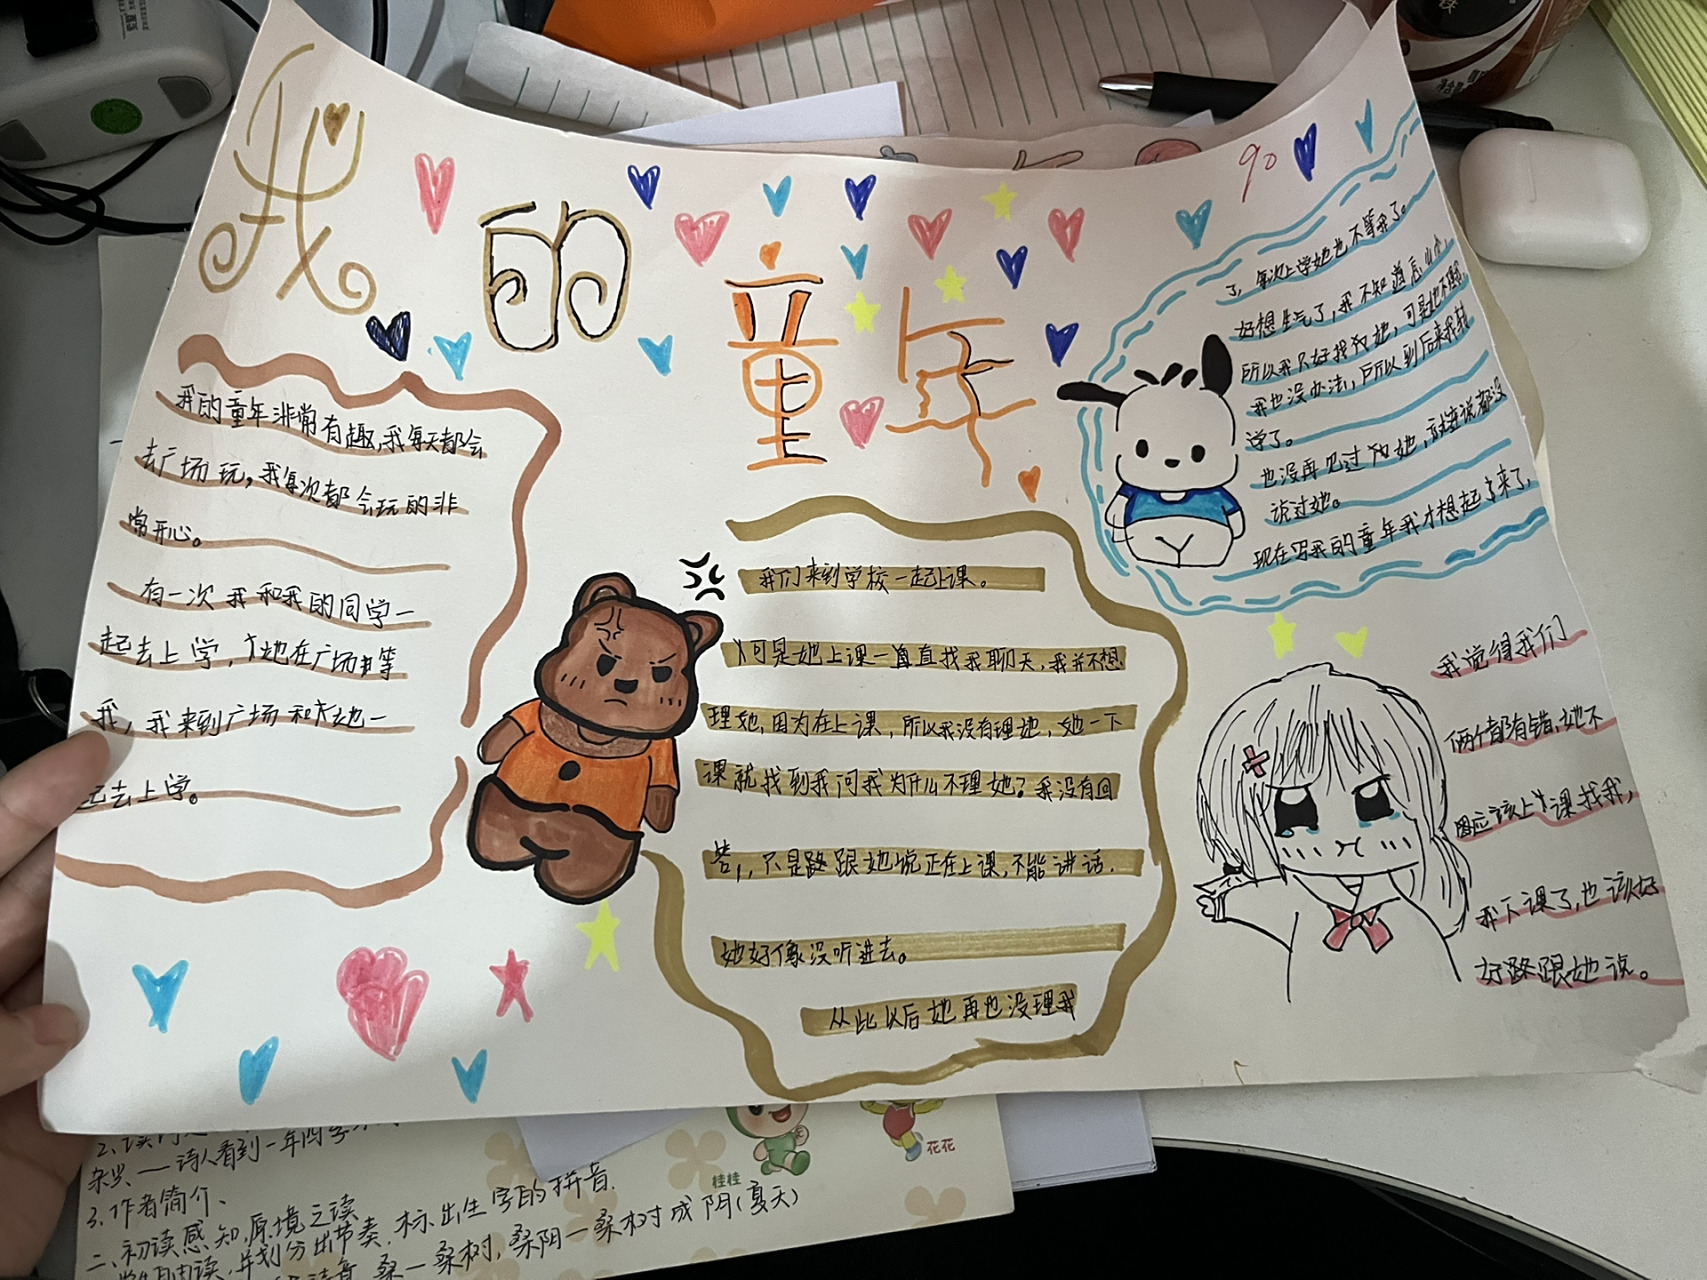 我的童年
90
我的童年非常有趣,我每天都会
去广场玩,我每次都会玩的非
常开心。
有一次我和我的同学一
起去上学,她在广场等
我,我来到广场和她一
起去上学。
我们来到学校一起上课。
可是她上课一直直找我聊天,我并不想
理她,因为在上课,所以我没有理她,她一下
课就找到我问我为什么不理她?我没有回
答,只是路跟她说正在上课,不能讲话.
她好像没听进去。
从此以后她再也没理我
了,每次上学她也不等我了。
好想生气了,我不知道后
所以我只好找她,可是她不
我也没办法,所以到后来我转
学了。
也没再见过她,就连说都没
说过她。
现在写我的童年我才想起来了,
我觉得我们
俩个都有错,她不
应该上课找我,
我下课了,也该好
好路跟她说。
杂兴——诗人看到一年四季
3.作者简介、
二、初读感知,原境之读
并划分出节奏,标出生字的拼音.
桑一桑树,桑阴一桑树成阴(夏天)
桂桂
花花